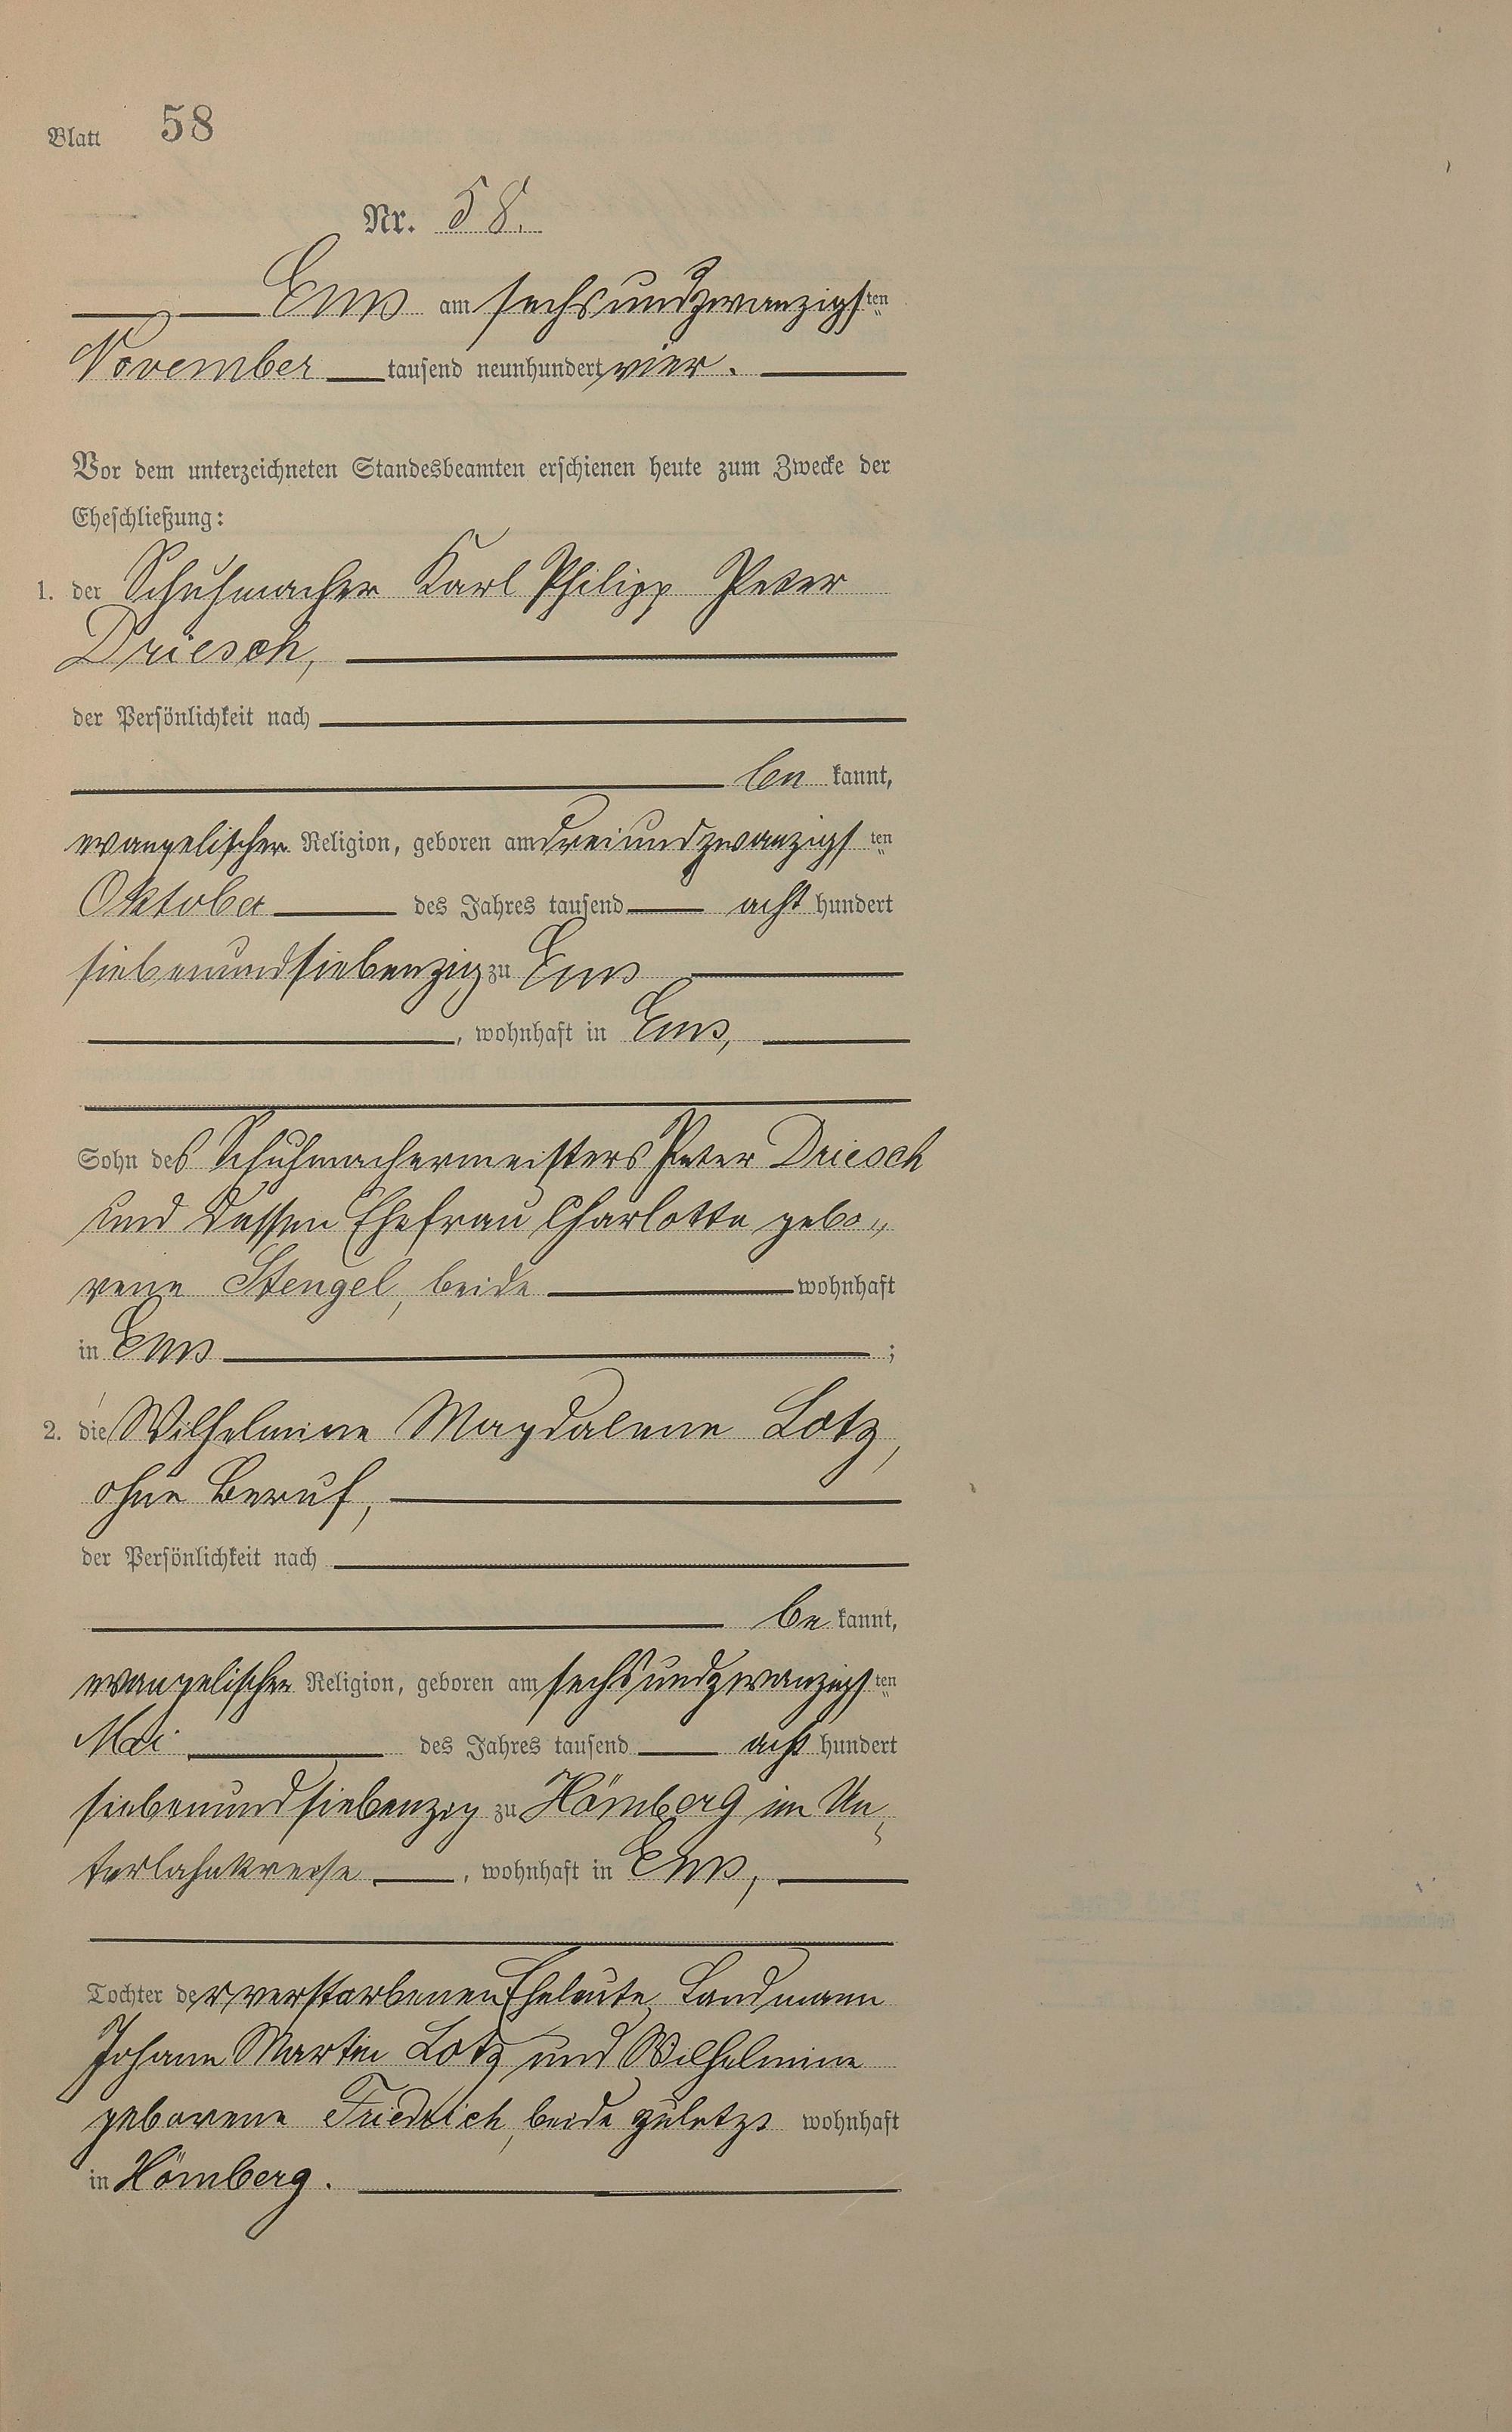 Blatt 58
Nr. 58.
Ems am sechsundzwanzigsten
November tausend neunhundert vier.
Vor dem unterzeichneten Standesbeamten erschienen heute zum Zwecke der
Eheschließung:
1. der Schuhmacher Karl Philipp Peter
Driesch,
der Persönlichkeit nach
be kannt,
evangelischer Religion, geboren am dreiundzwanzigsten
Oktober des Jahres tausend acht hundert
siebenundsiebenzig zu Ems
, wohnhaft in Ems,
Sohn des Schuhmachermeisters Peter Driesch
und dessen Ehefrau Charlotte gebo„
rene Stengel, beide wohnhaft
in Ems ;
2. die Wilhelmine Magdalene Lotz,
ohne Beruf,
der Persönlichkeit nach
be kannt,
evangelischer Religion, geboren am sechsundzwanzigsten
Mai des Jahres tausend acht hundert
siebenundsiebenzig zu Hömberg im Un„
terlahnkreise , wohnhaft in Ems,
Tochter der verstorbenen Eheleute, Landmann
Johann Martin Lotz und Wilhelmine
geborene Friedrich, beide zuletzt wohnhaft
in Hömberg.